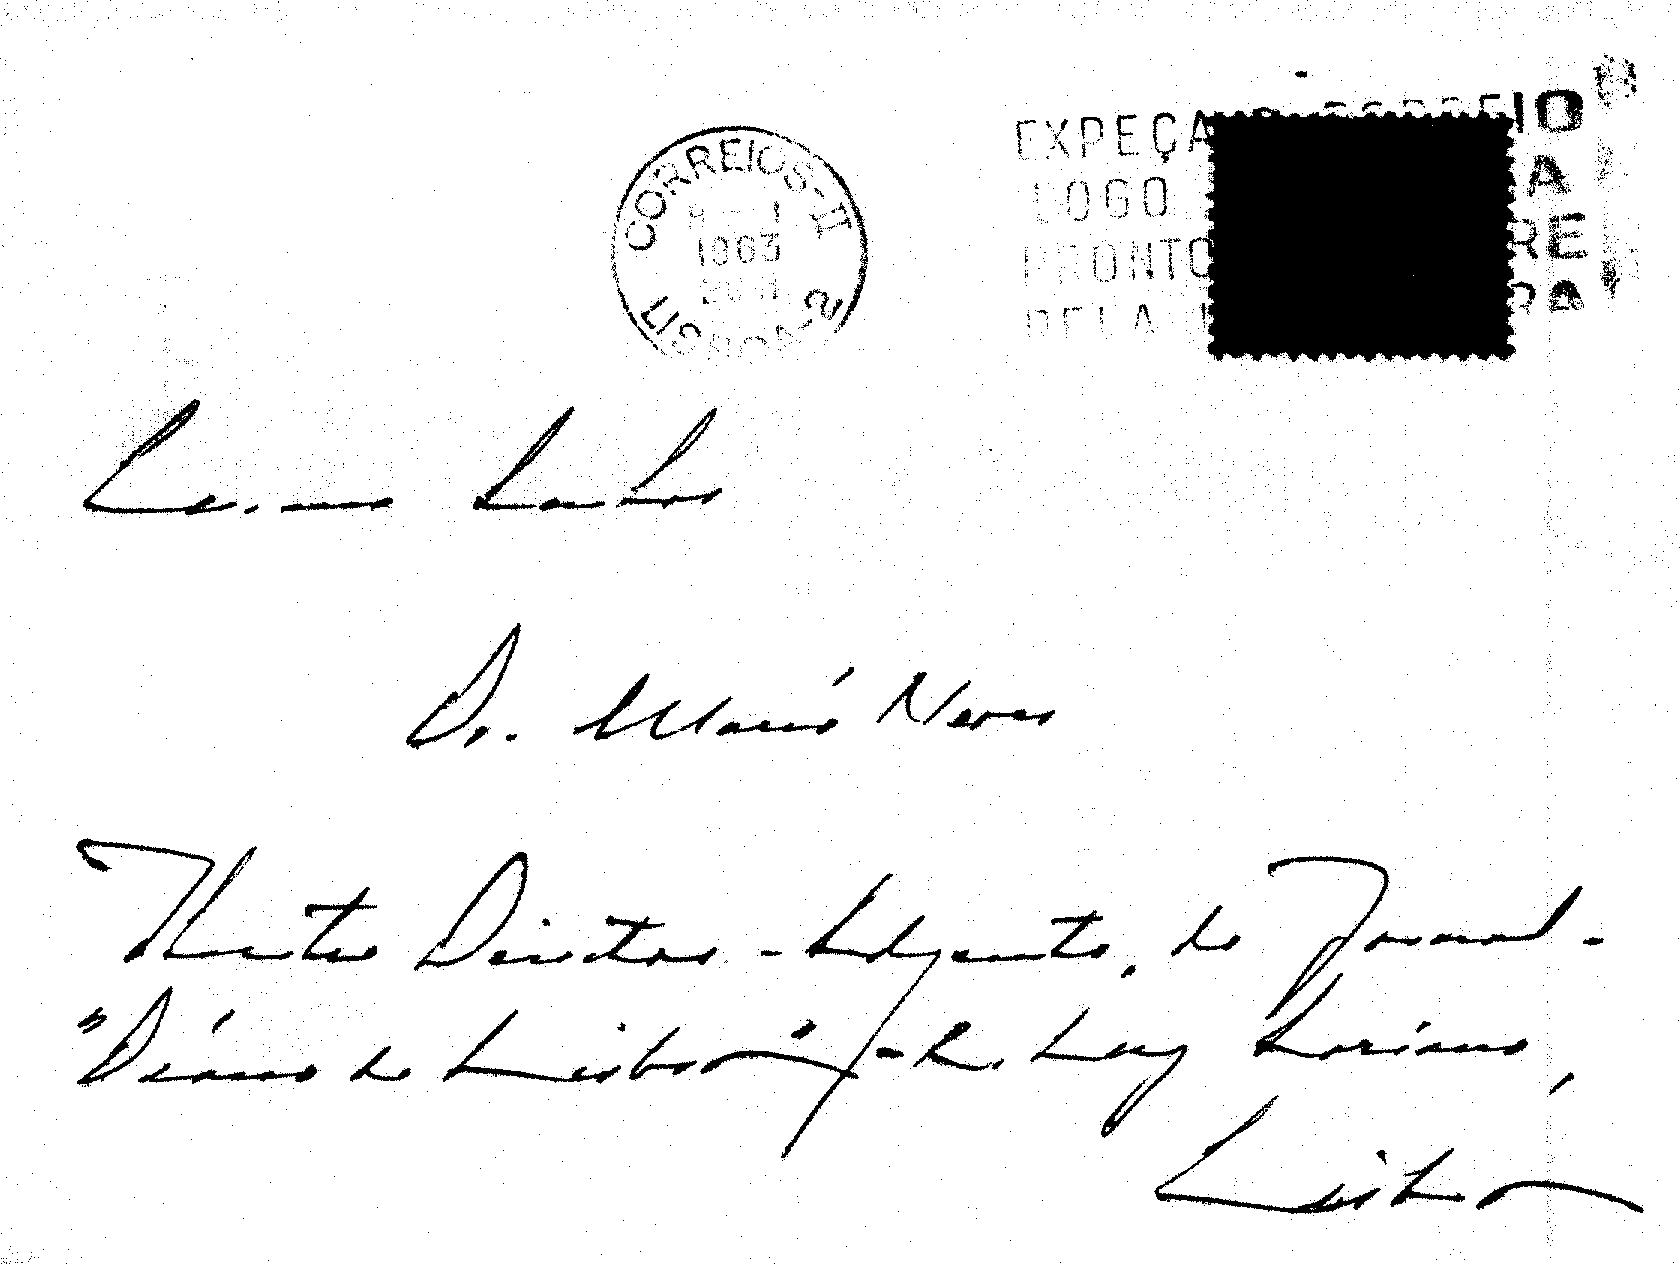 CORREIOS-II
1963
LISBOA-2
EXPEÇA O CORREIO
LOGO
PRONTO
PELA
Dr. Mário Neves
Ilustre Director-Adjunto, do Jornal-
"Diário de Lisboa" - R. Luz Soriano,
Lisboa